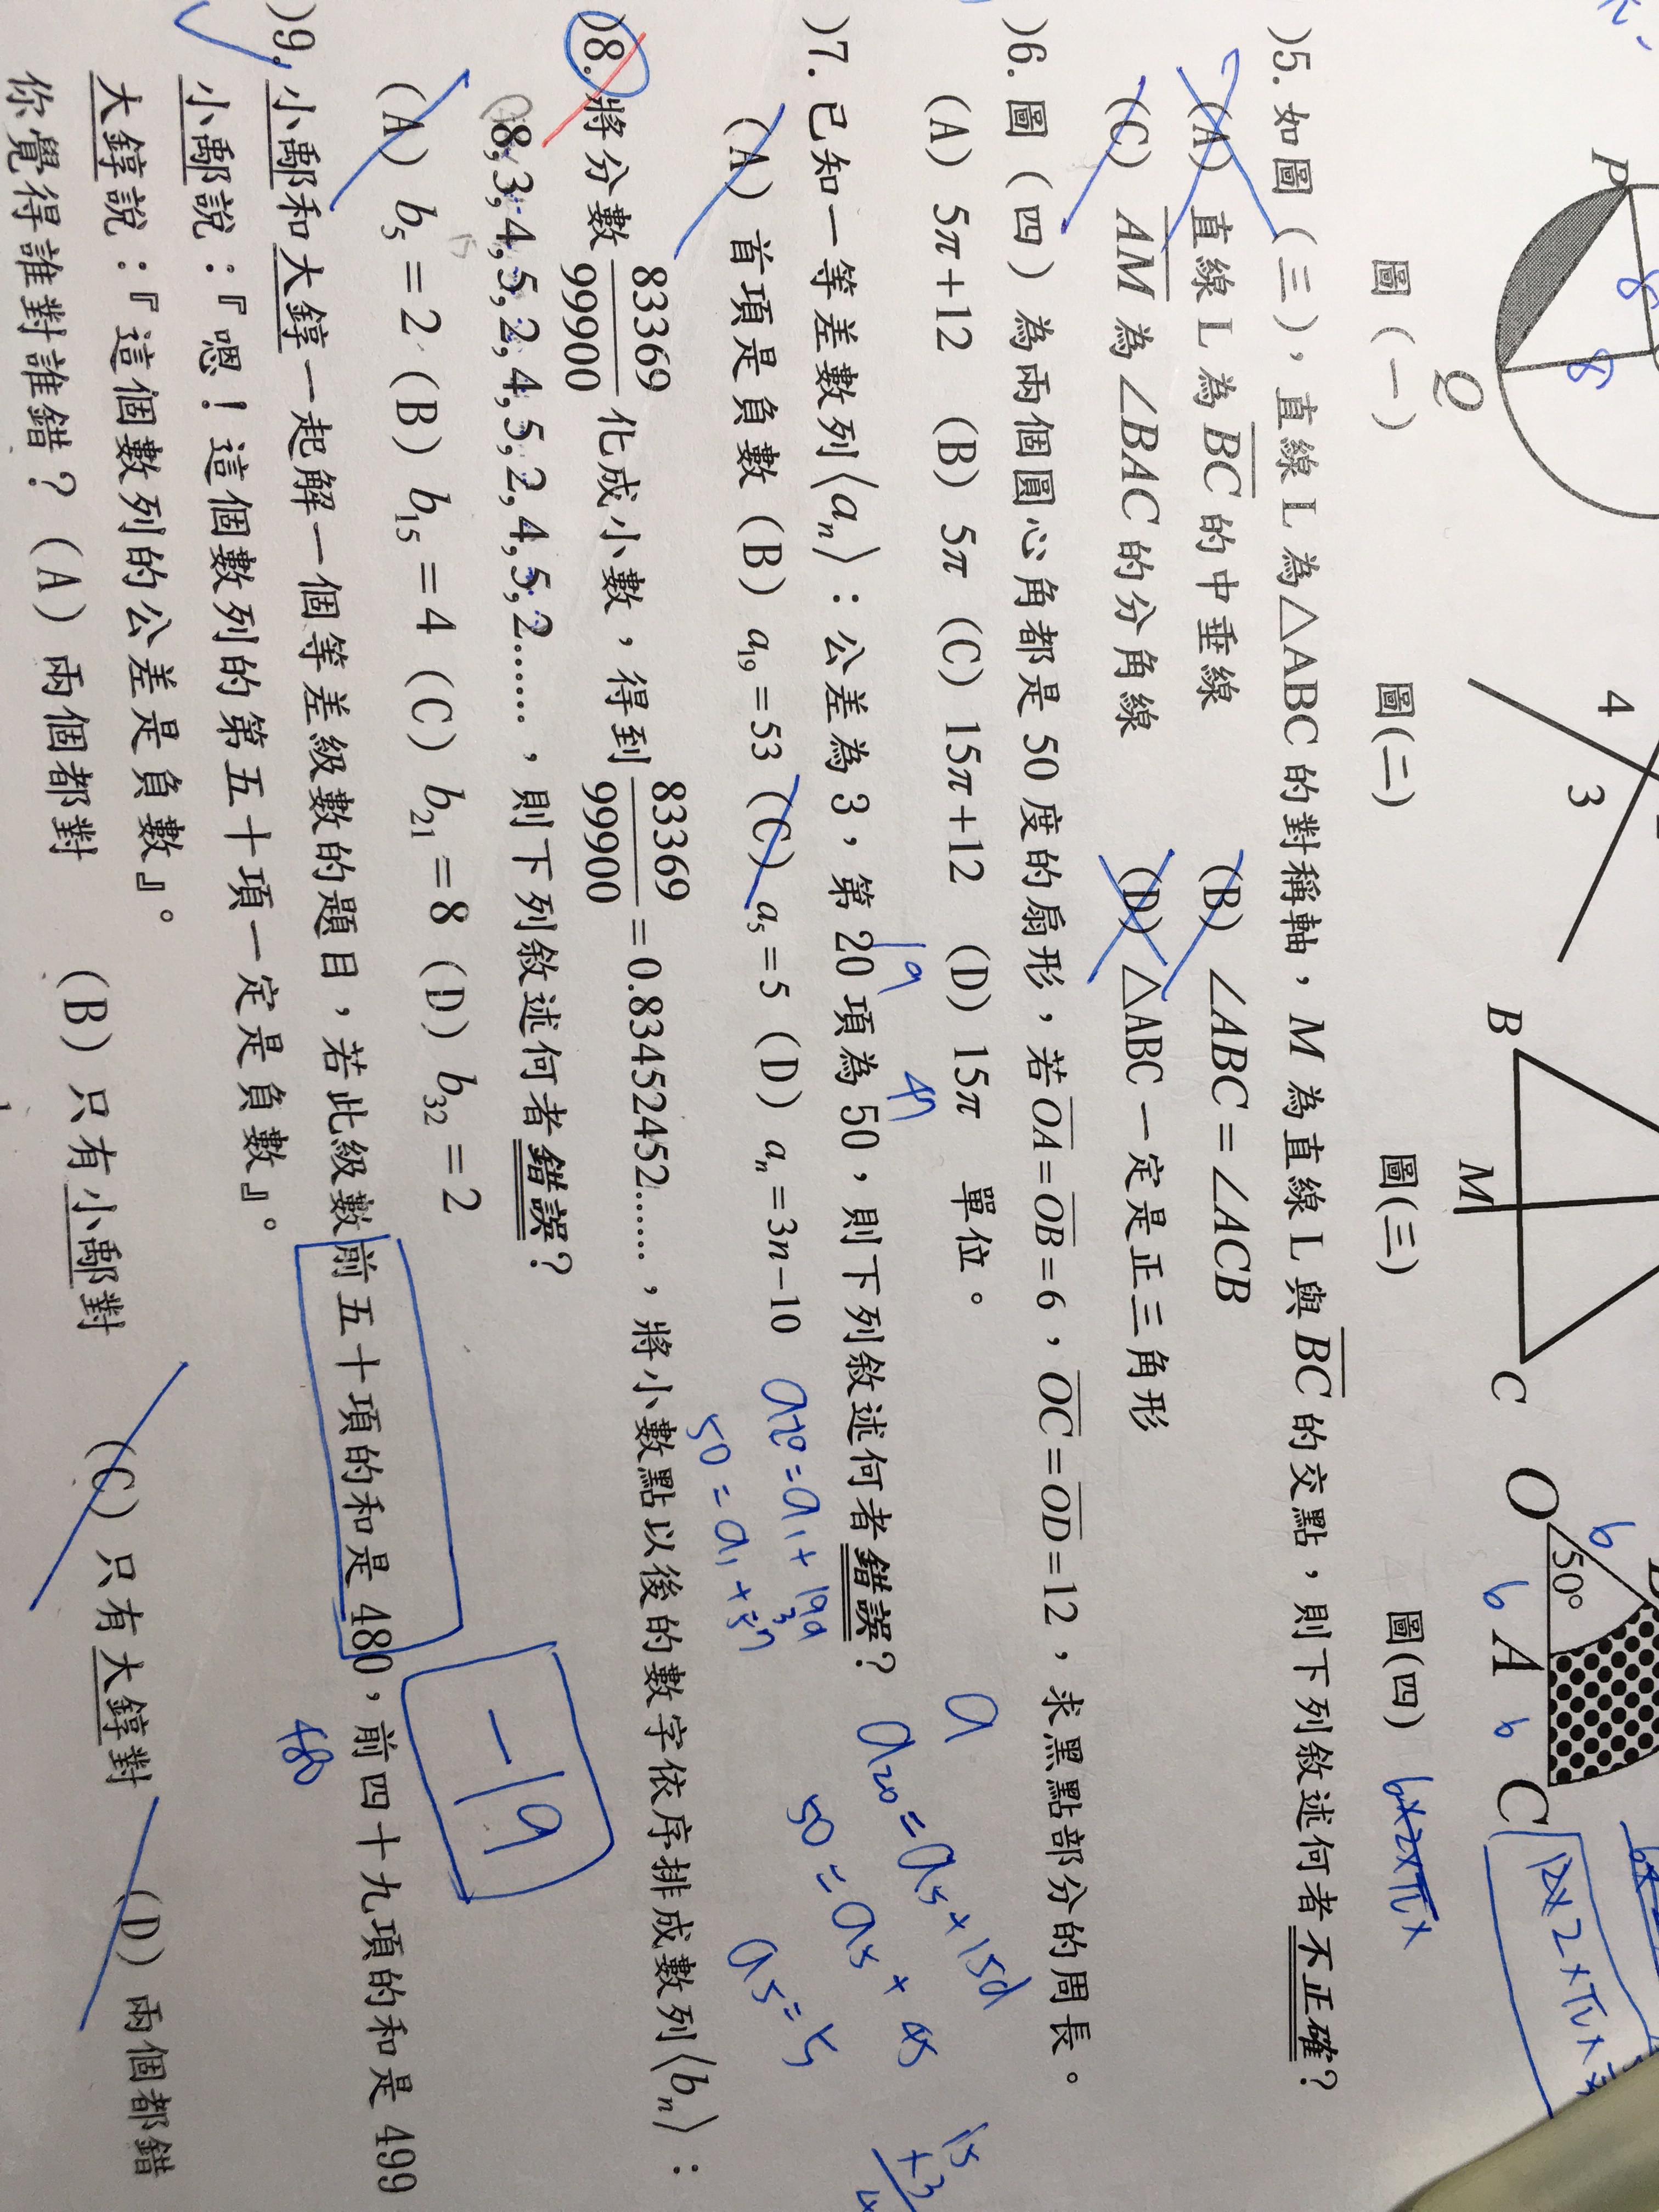 P
8
8
Q
4
3
B
M
C
O
50°
6
6 A 6 C
圖(一) 圖(二) 圖(三) 圖(四)
)5. 如圖(三),直線L為△ABC的對稱軸,M為直線L與BC的交點,則下列敘述何者不正確?
(A) 直線L為BC的中垂線 (B) ∠ABC=∠ACB
(C) AM為∠BAC的分角線 (D) △ABC一定是正三角形
)6. 圖(四)為兩個圓心角都是50度的扇形,若OA=OB=6,OC=OD=12,求黑點部分的周長。
(A) 5π+12 (B) 5π (C) 15π+12 (D) 15π 單位。
)7. 已知一等差數列⟨aₙ⟩:公差為3,第20項為50,則下列敘述何者錯誤?
(A) 首項是負數 (B) a₁₉=53 (C) a₅=5 (D) aₙ=3n−10
a₂₀=a₅+15d
50=a₅+45
a₅=5
)8. 將分數83369/99900化成小數,得到83369/99900=0.83452452……,將小數點以後的數字依序排成數列⟨bₙ⟩:
8,3,4,5,2,4,5,2,4,5,2……,則下列敘述何者錯誤?
(A) b₅=2 (B) b₁₅=4 (C) b₂₁=8 (D) b₃₂=2
-19
)9. 小鄅和大錞一起解一個等差級數的題目,若此級數前五十項的和是480,前四十九項的和是499
480
小鄅說:『嗯!這個數列的第五十項一定是負數』。
大錞說:『這個數列的公差是負數』。
你覺得誰對誰錯?(A) 兩個都對 (B) 只有小鄅對 (C) 只有大錞對 (D) 兩個都錯